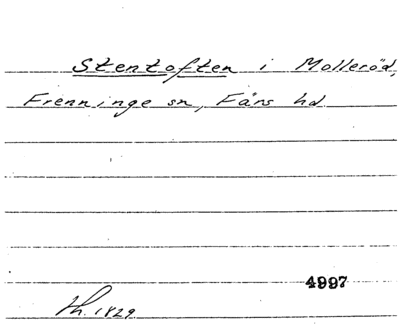 Stentoften i Molleröd,
Frenninge sn, Färs hd
4997
th. 1829